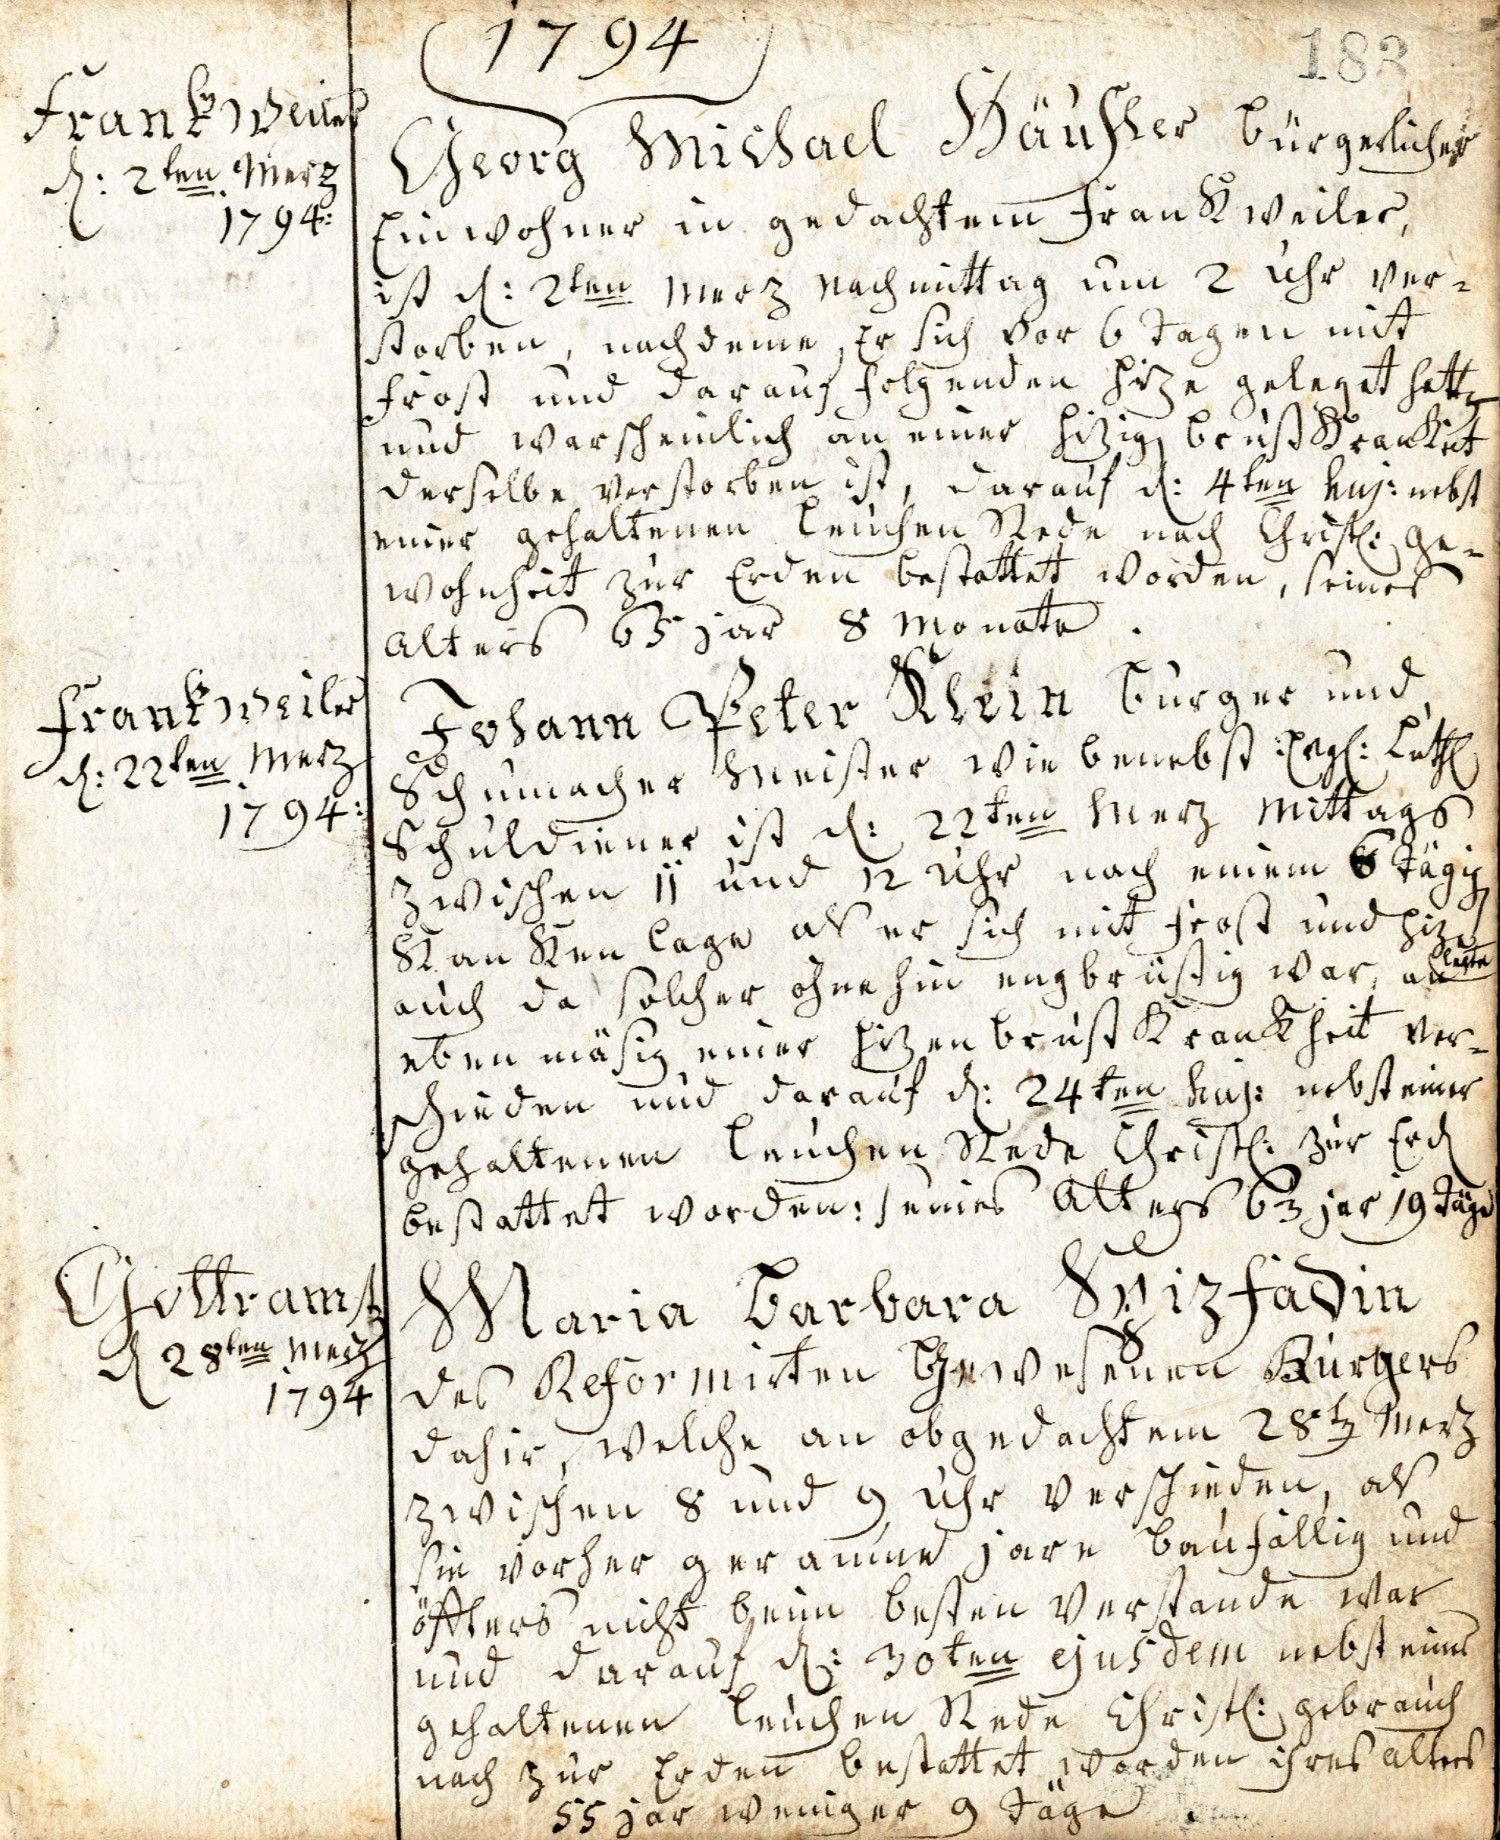 1794
183
Frankweiler
d: 2ten Merz
1794:
Georg Michael Häußler bürgerlicher
Einwohner in gedachtem Frankweiler,
ist d: 2ten Merz Nachmittag um 2 Uhr ver-
storben, nachdeme Er sich vor 6 Tagen mit
Frost und darauf folgenden Hize geleget hatte
und warscheinlich an einer hizig brust Krankheit
derselbe verstorben ist, darauf d: 4ten huj: nebst
einer gehaltenen Leuchen Rede nach Christl: ge-
wohnheit zur Erden bestattet worden, seines
alters 65 jar 8 Monate.
Frankweiler
d: 22ten Merz
1794:
Johann Peter Klein burger und
Schumacher Meister wie benebst Evgl: Luth
Schuldiener ist d: 22ten Merz Mittags
zwischen 11 und 12 Uhr nach einem 6 tägig
Kranken lage als er sich mit Frost und Hize
legte
auch da solcher ohne hin engbrüstig war, an
eben mäsig einer hizen brust Krankheit ver-
schieden und darauf d: 24ten huj: nebst einer
gehaltenen Leuchen Rede Christl: zur Erd
bestattet worden: seines Alters 63 jar 19 täge
Gottramst
d 28ten Merz
1794
Maria Barbara Spizfadin
des Reformirten Gewesenen Bürgers
dahir, welche an obgedachtem 28tn Merz
zwischen 8 und 9 Uhr verschieden, als
sie vorher geraume jare baufällig und
öffters nicht beim besten Verstande war
und darauf d: 30ten ejusdem nebst einer
gehaltenen Leuchen Rede Christl: gebrauch
nach zur Erden bestattet worden ihres alters
55 jar weniger 9 Täge.